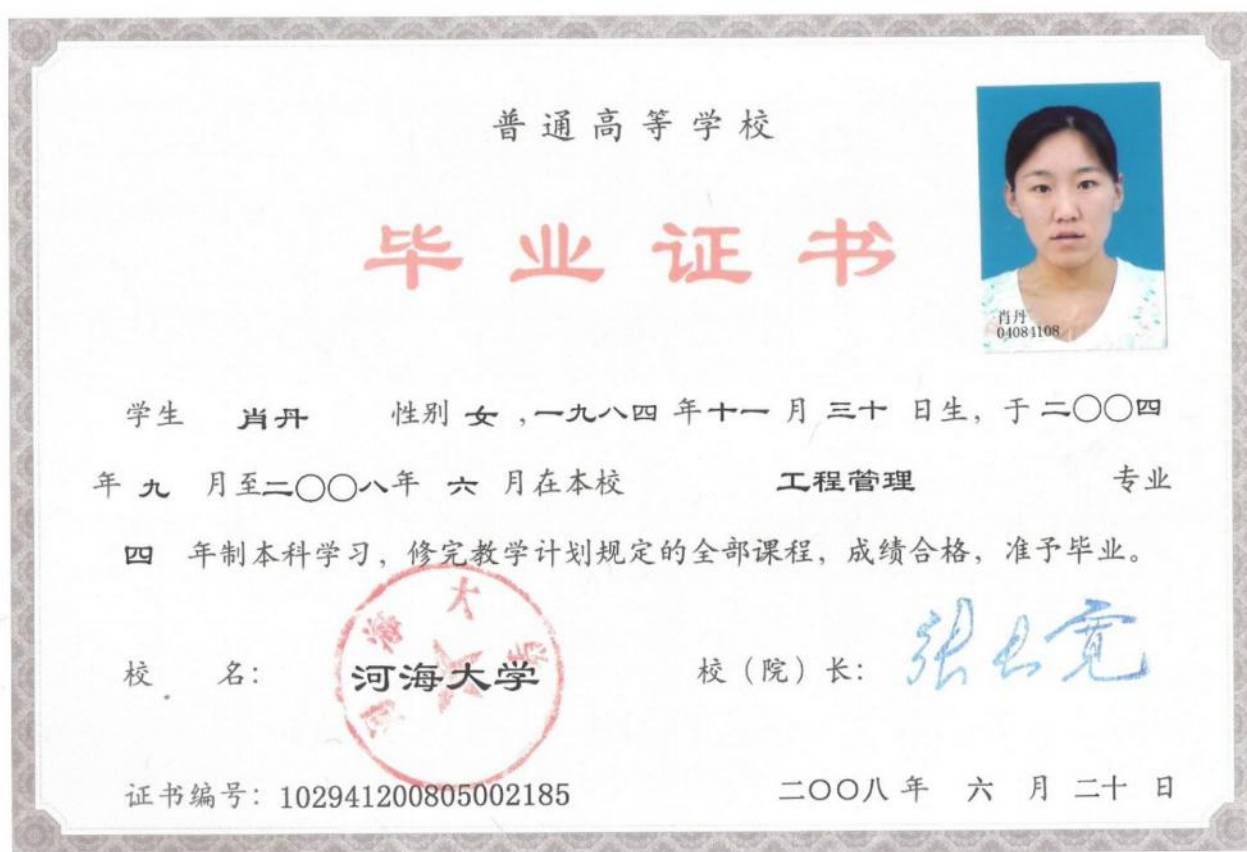 普通高等学校
毕业证书
肖丹
04084108
学生 肖丹 性别 女 ,一九八四 年十一 月 三十 日生, 于 二〇〇四
年 九 月至二〇〇八年 六 月在本校 工程管理 专业
四 年制本科学习, 修完教学计划规定的全部课程, 成绩合格, 准予毕业。
校 名: 河海大学 校(院)长: 张长宽
河海大学
证书编号: 102941200805002185 二〇〇八 年 六 月 二十 日